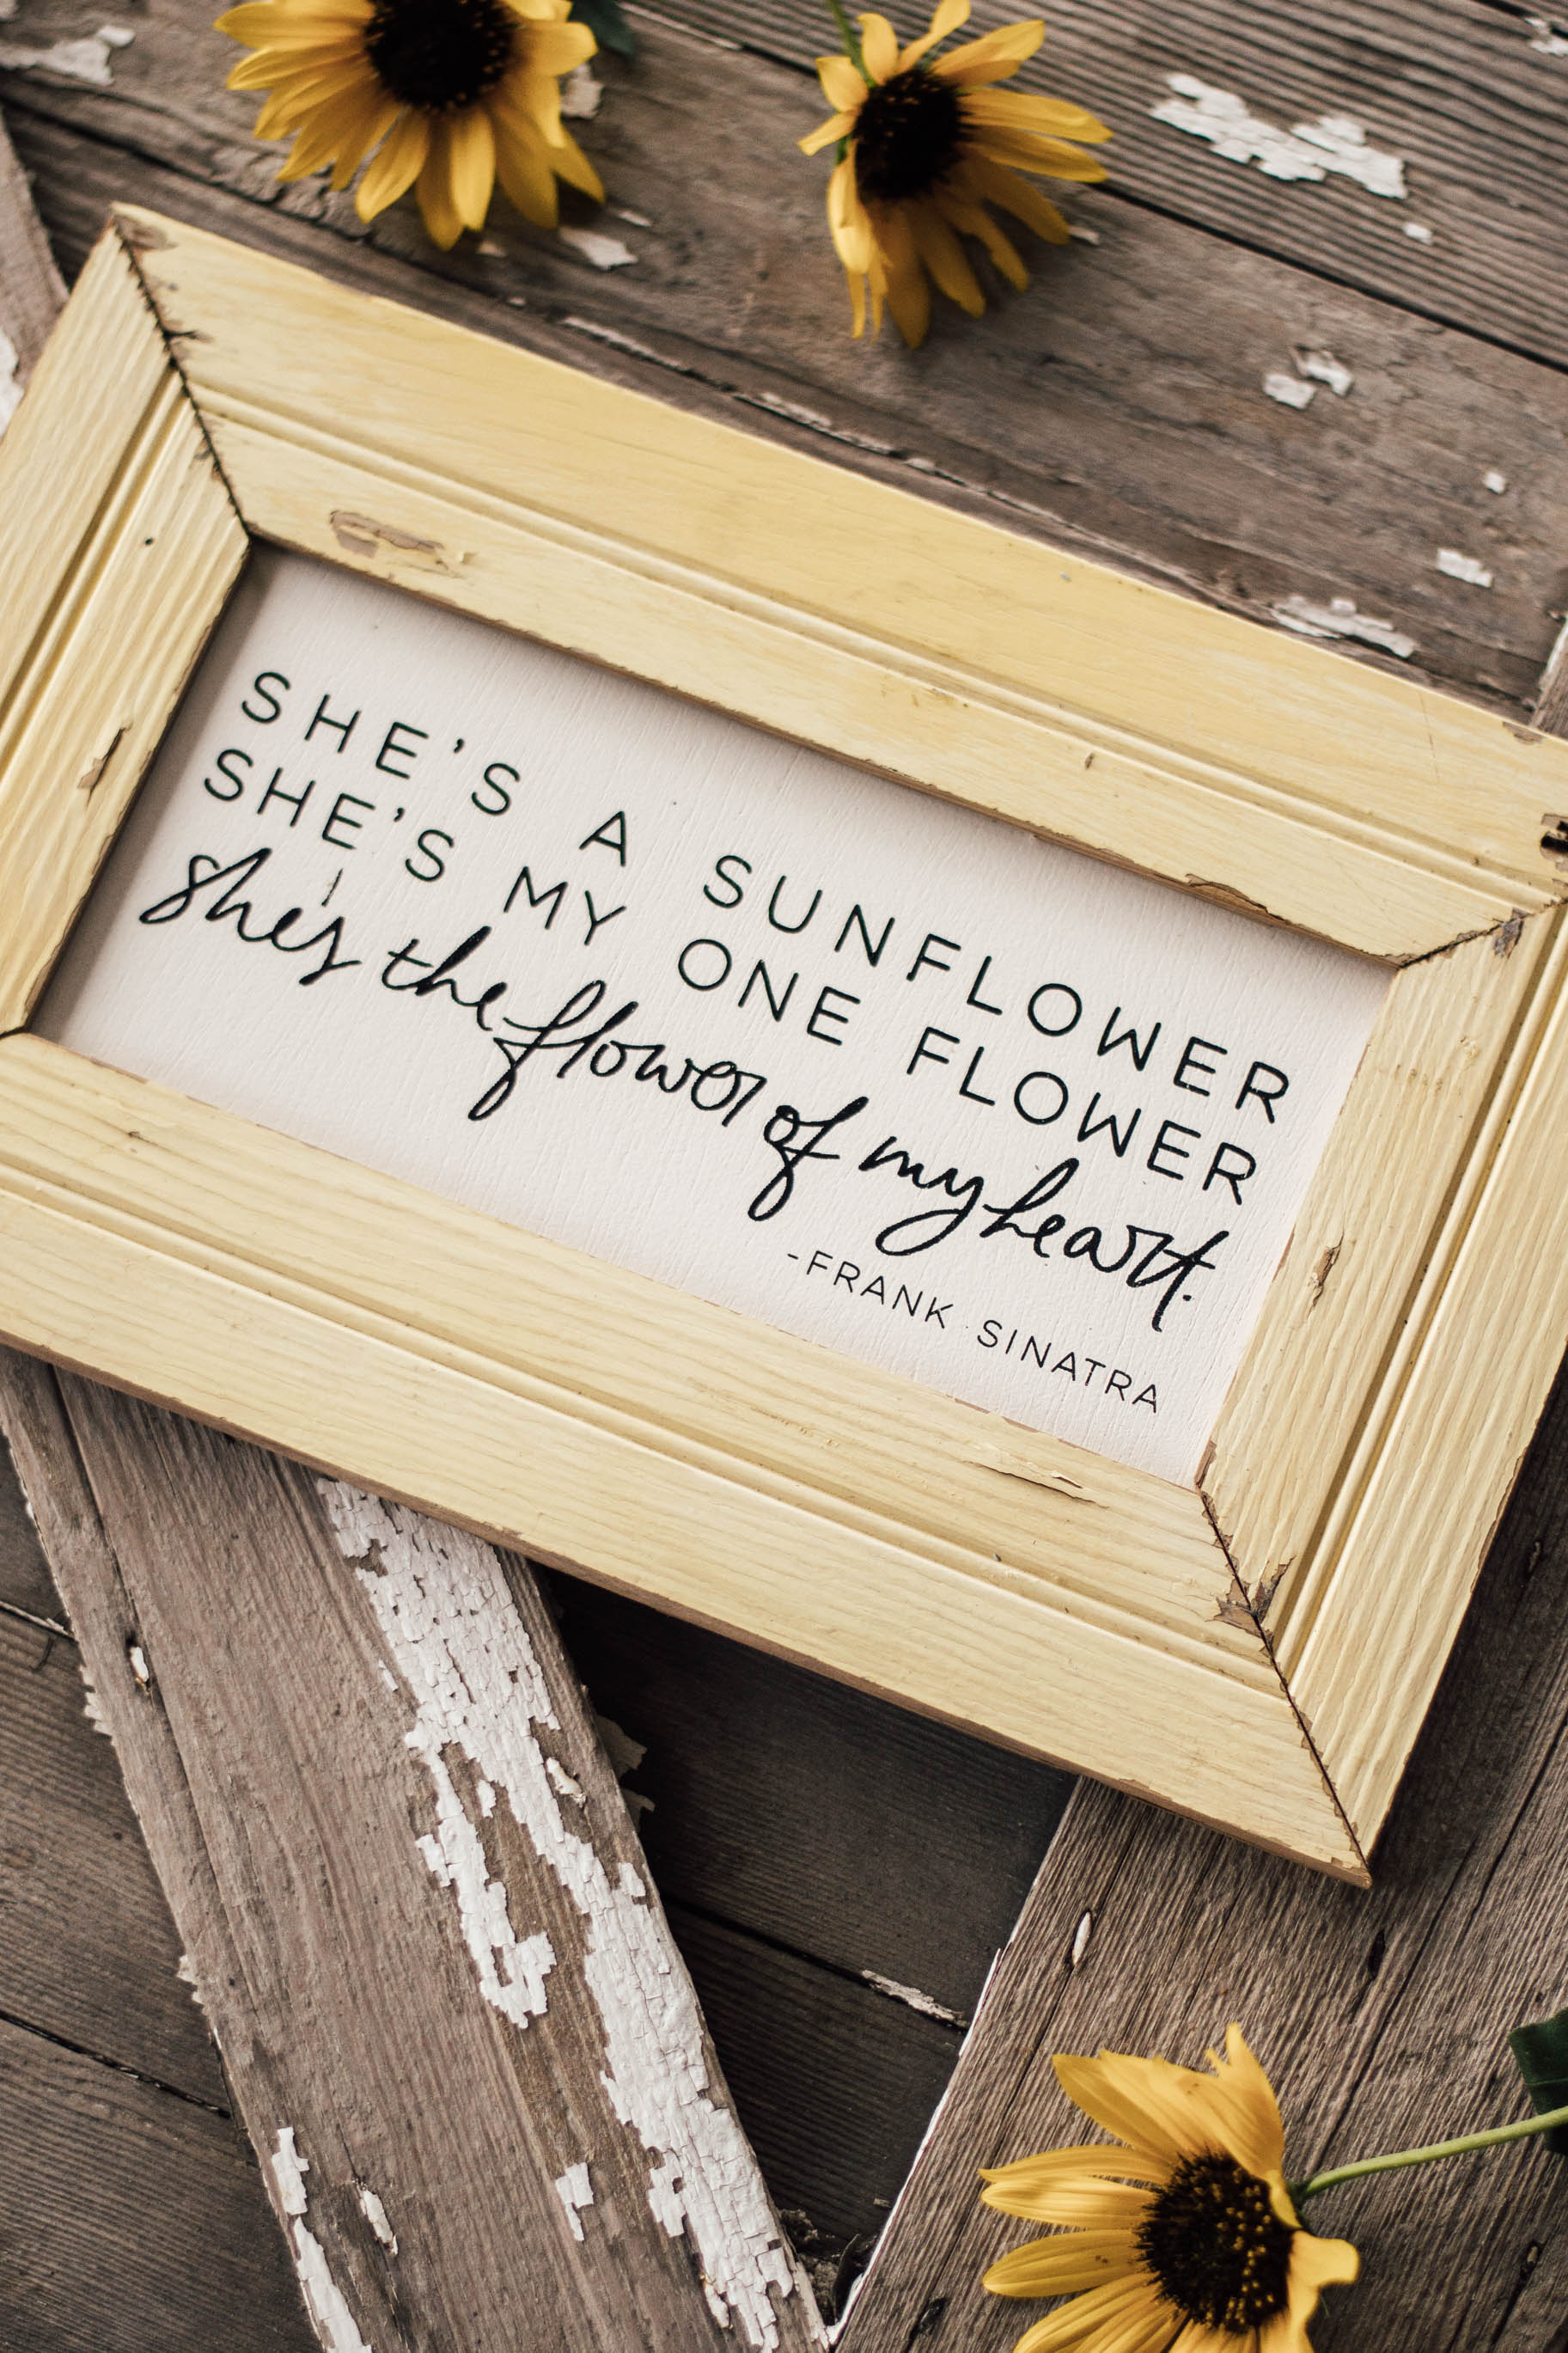 SHE'S A SUNFLOWER
SHE'S MY ONE FLOWER
she's the flower of my heart.
-FRANK SINATRA